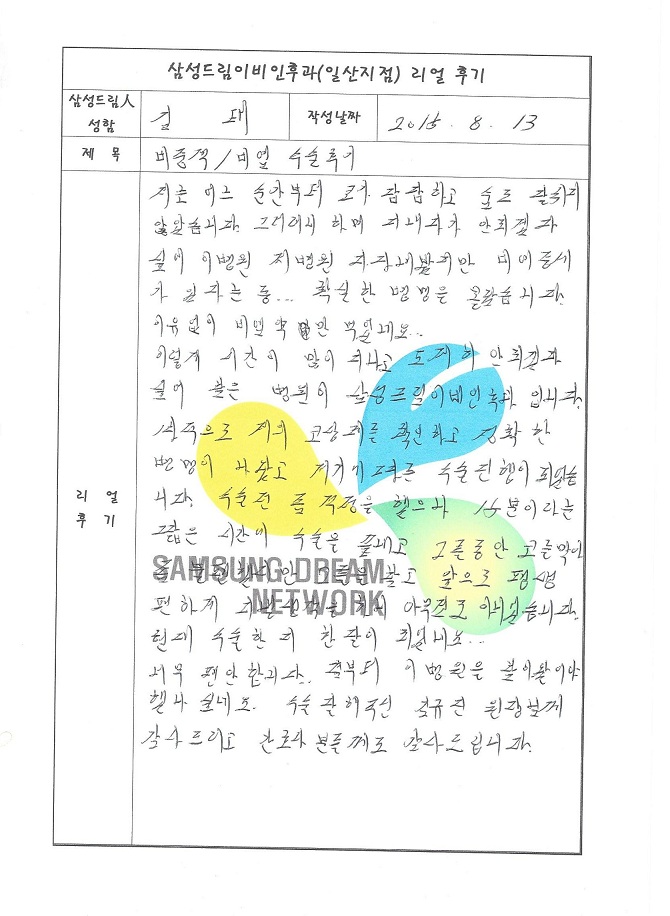 삼성드림이비인후과(일산지점) 리얼 후기
삼성드림人
성함
김 태
작성날짜
2015. 8. 13
제 목
비중격/비염 수술후기
리 얼
후 기
저는 어느 순간부터 코가 답답하고 숨도 잘쉬지
않았습니다. 그러려니 하며 지내다가 안되겠다
싶어 이병원 저병원 다녀봤지만
가 있다는 등... 확실한 병명을 몰랐습니다.
이유없이 비염 약만 먹었네요...
이렇게 시간이 많이 지나고 도저히 안되겠다
싶어 찾은 병원이 삼성드림이비인후과 입니다.
저의 확인하고 정확한
병명이 나왔고 수술진행이 되었습
니다. 수술전 걱정을 했으나 15분이라는
짧은 시간에 수술을 끝내고 그틀동안
SAMSUNG DREAM
NETWORK
앞으로 평생
편하게 아무것도 아니었습니다.
현재 수술한 지 한달이 되었네요...
너무 편안합니다. 이병원을
했나 싶네요. 수술 잘해주신 원장님께
감사드리고 간호사분들께도 감사드립니다.